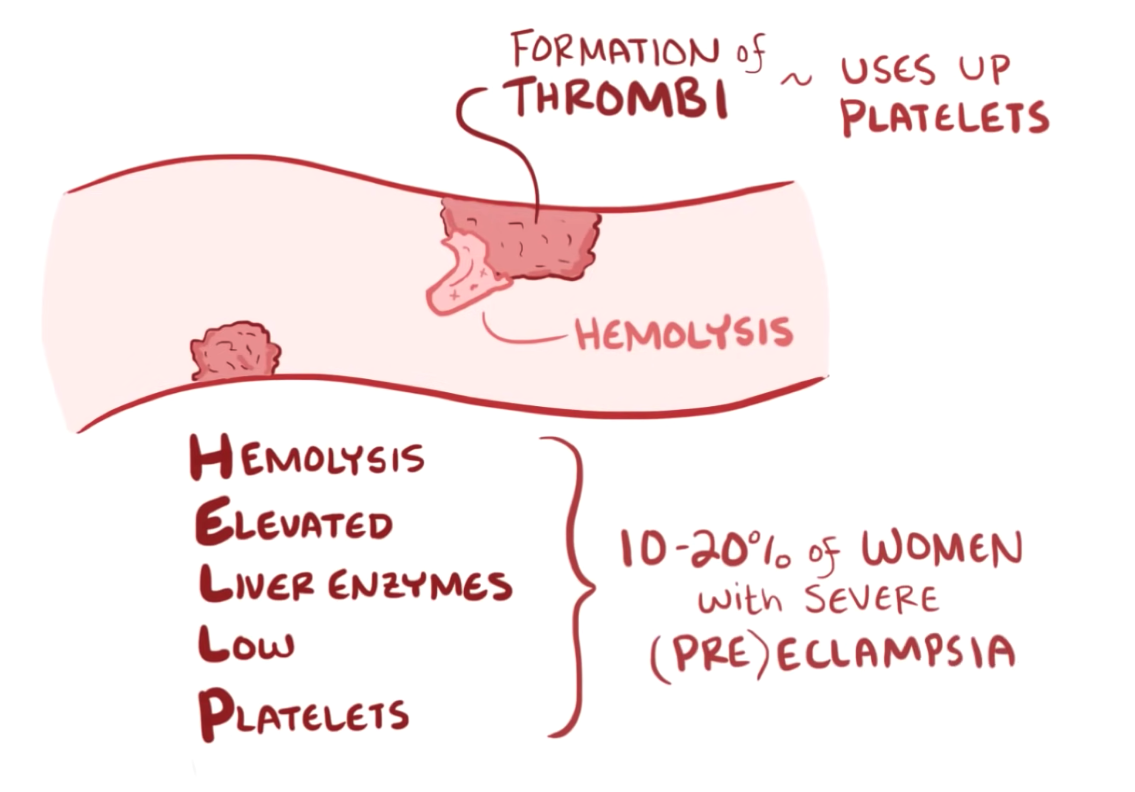 FORMATION of
THROMBI
~ USES UP
PLATELETS
HEMOLYSIS
HEMOLYSIS
ELEVATED
LIVER ENZYMES
LOW
PLATELETS
10-20% of WOMEN
with SEVERE
(PRE)ECLAMPSIA